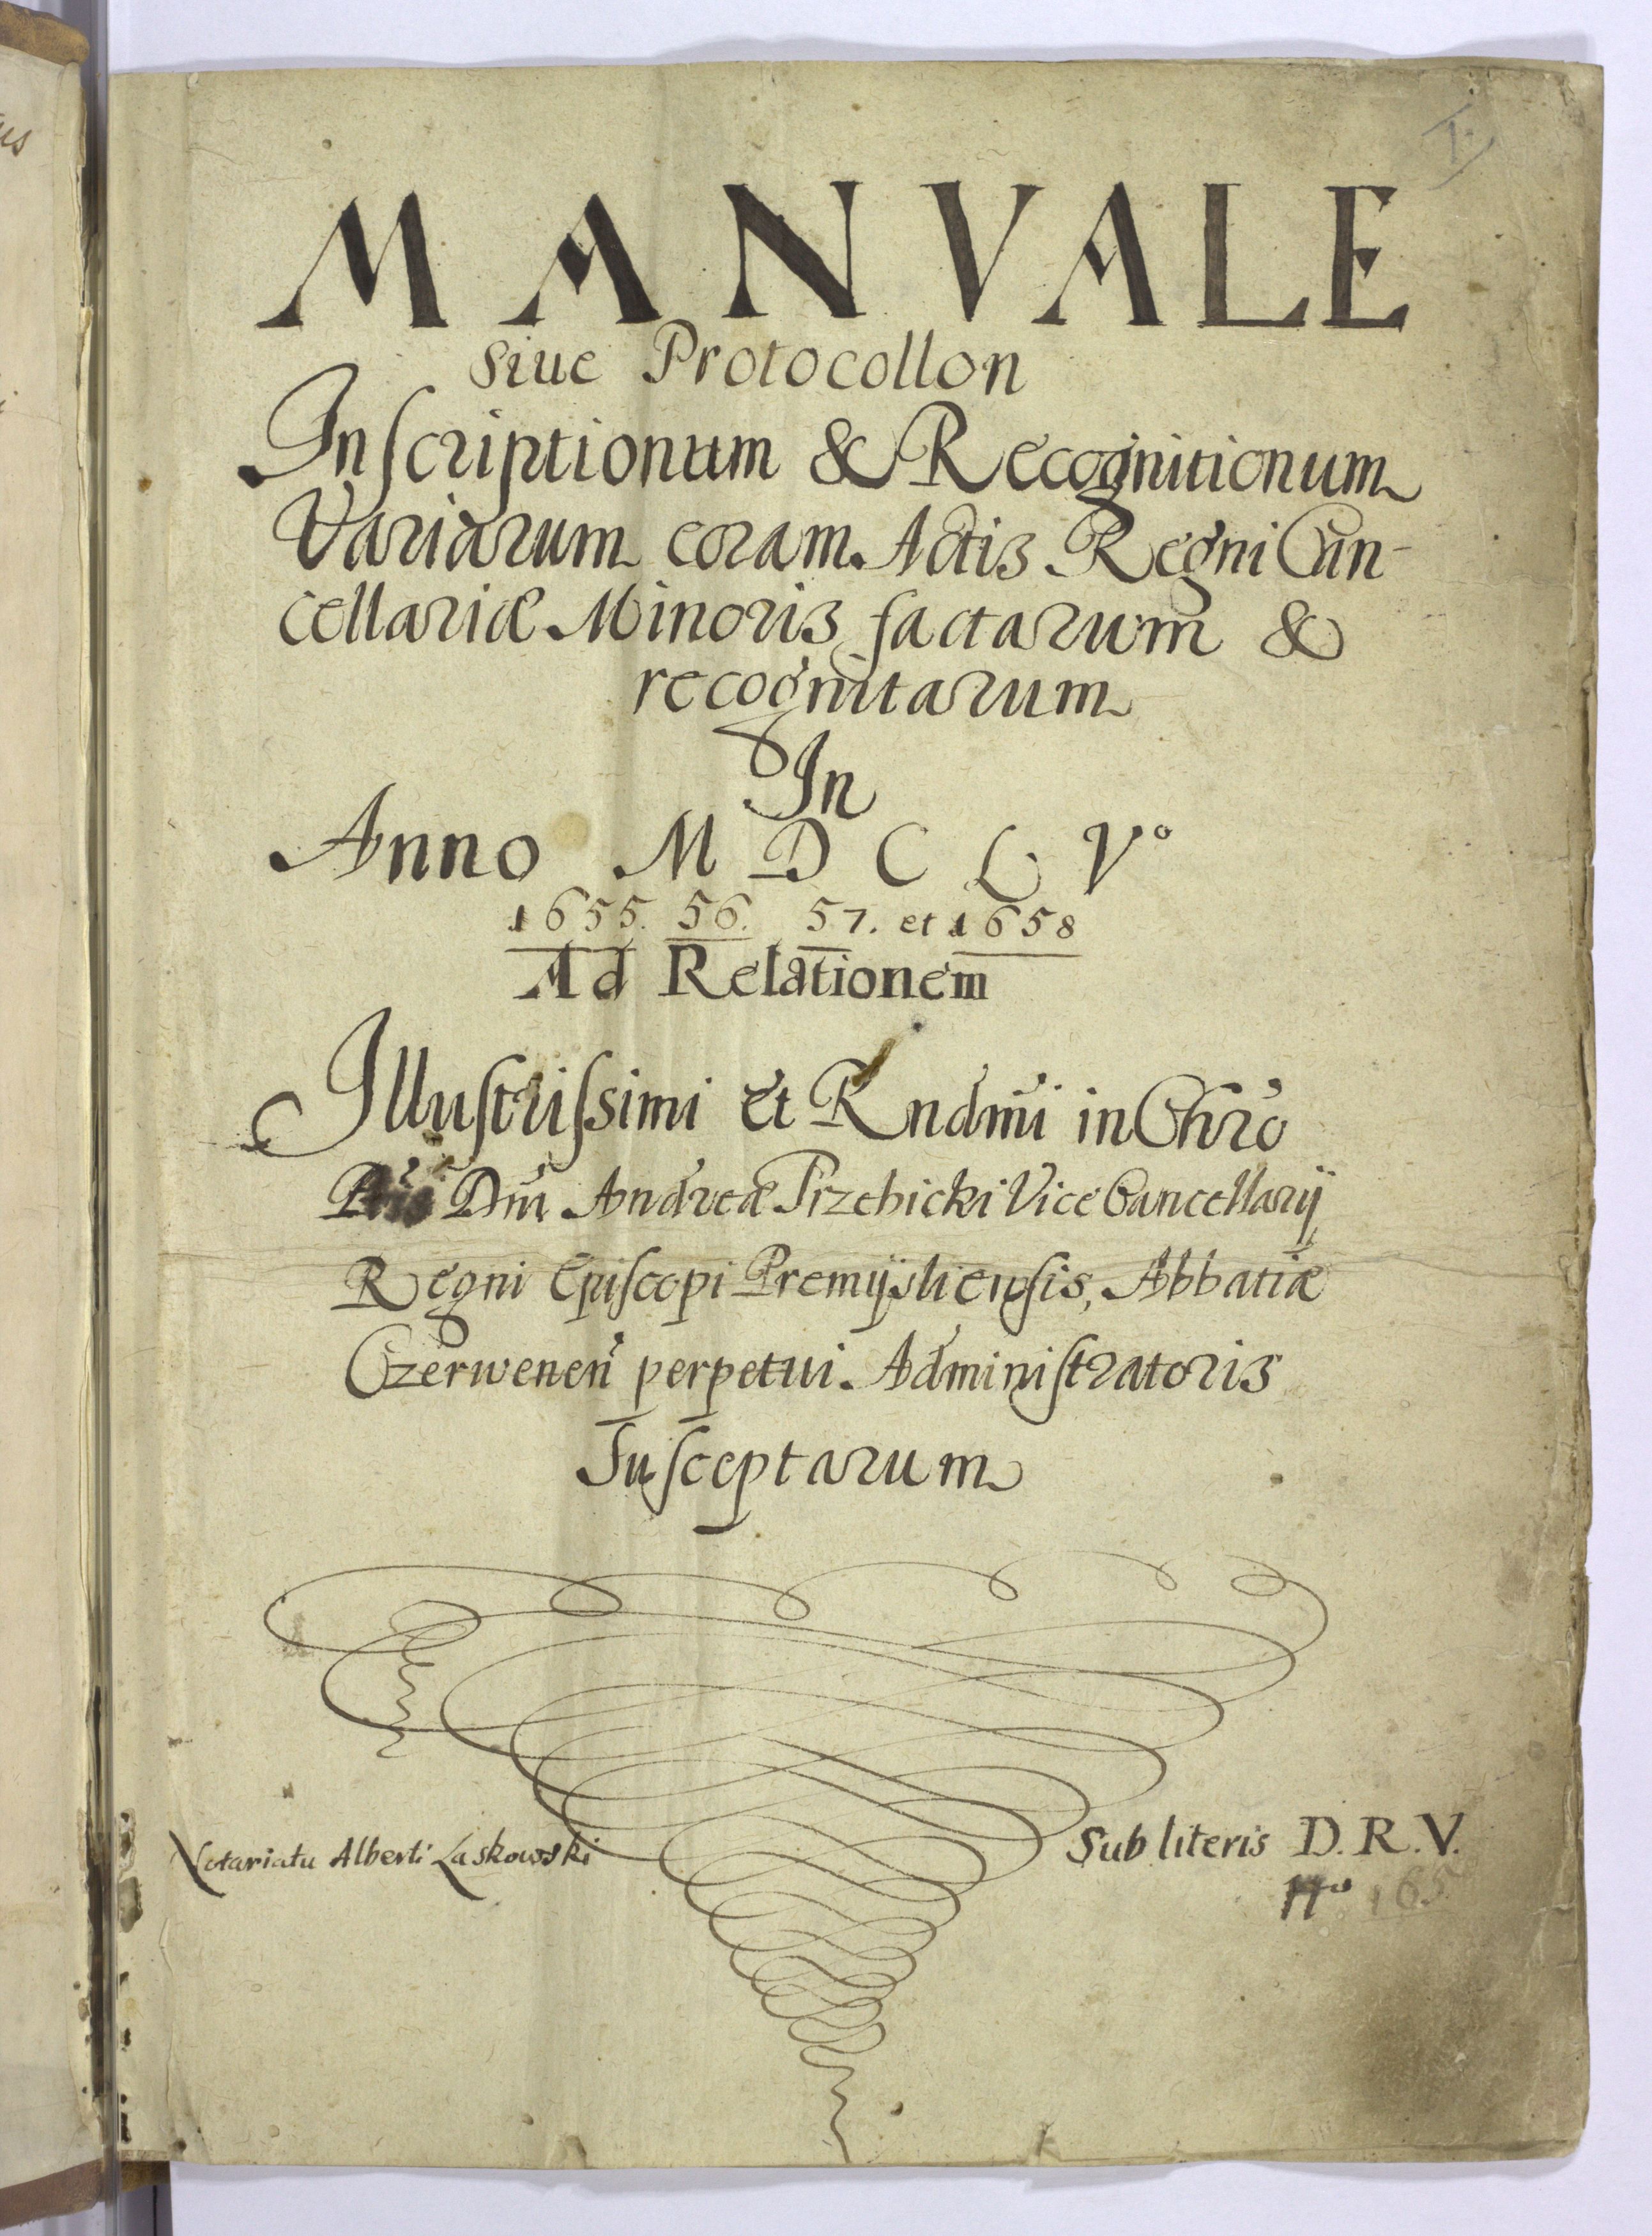 1.
MANVALE
siue Protocollon
Inscriptionum & Recognitionum
Variarum coram Actis Regni Can-
cellariæ Minoris factarum &
recognitarum
In
Anno M D C L Vº
1655. 56. 57. et 1658
Ad Relationem
Illustrissimi et Rndmi in Chro
Pris Dni Andreæ Trzebicki Vice Cancellarij
Regni Episcopi Premijsliensis, Abbatiæ
Czerwenen perpetui Administratoris
Susceptarum
Notariatu Alberti Laskowski
Sub literis D. R. V.
165